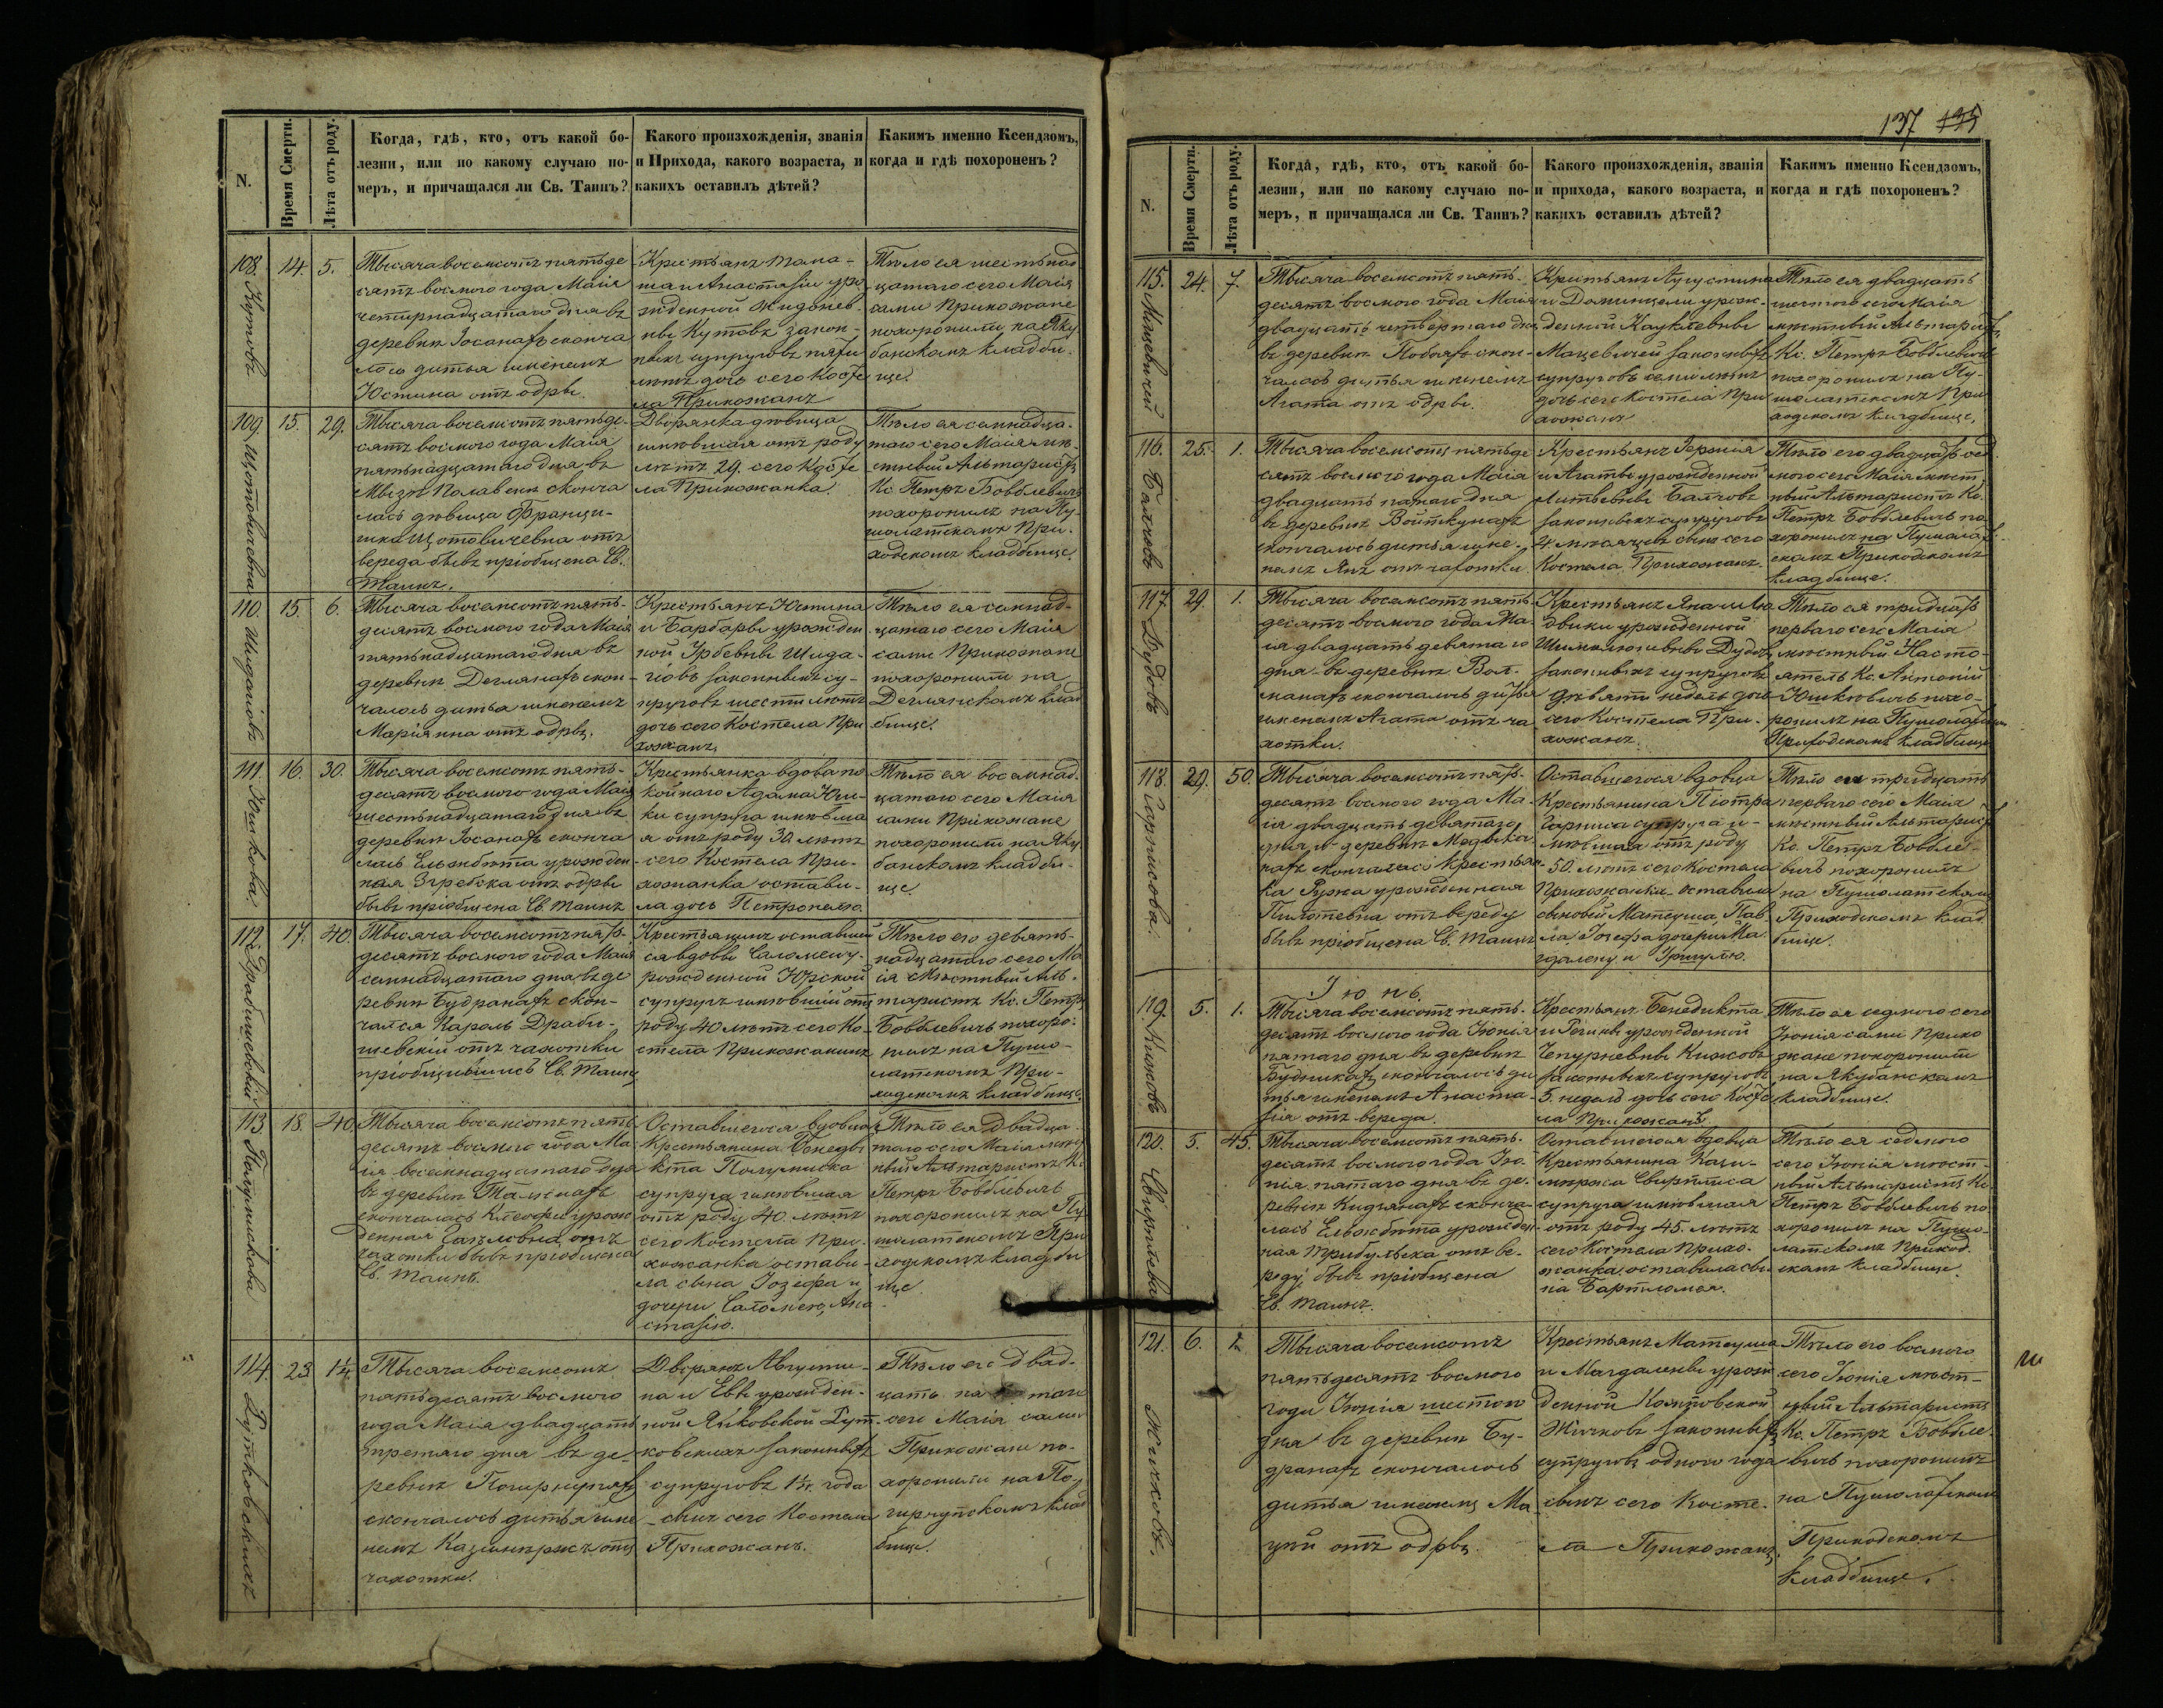 137 135
N.
Время Смерти.
Лѣта отъ роду.
Когда, гдѣ, кто, отъ какой бо-
лезни, или по какому случаю по-
меръ, и причащался ли Св. Таинъ?
Какого произхожденія, званія
и Прихода, какого возраста, и
какихъ оставилъ дѣтей?
Какимъ именно Ксендзомъ,
когда и гдѣ похороненъ?
108.
14.
5.
Тысяча восемсотъ пятьде
сятъ восмого года Маія
четирнадцатого дня въ
деревни
сконча
лось дитья именемъ
Юстина отъ одры.
Крестьянъ Тома-
ша и Анастасіи уро
жденной
Кутовъ закон-
ныхъ супруговъ пяти
лѣтъ дочь сего Косте
ла Прихожанъ
Тѣло ея шестьнад
цатаго сего Маія
сами Прихожане
похоронили на Яку
банскомъ кладби-
ще.
109.
15.
29.
Тысяча восемсотъ пятьде-
сятъ восмого года Маія
пятьнадцатаго дня въ
сконча
лась дѣвица Франци-
шка
отъ
вереда бывъ пріобщена Св.
Таинъ.
Дворянка дѣвица
имѣвшая отъ роду
лѣтъ 29. сего Косте
ла Прихожанка.
Тѣло ея семнадца-
таго сего Маія мѣ-
стный Альтаристъ
Кс. Петръ Бовблевичъ
похоронилъ на Пу-
шолатскомъ При-
ходскомъ кладбище.
110.
15.
6.
Тысяча восемсотъ пять-
десятъ восмого года Маія
пятьнадцатаго дня въ
деревни Деглянахъ скон-
чалось дитья именемъ
Маріянна отъ одры.
Крестьянъ Юстина
и Барбары урожден
ной
законныхъ су-
пруговъ шести лѣтъ
дочь сего Костела При
хожанъ.
Тѣло ея семнад-
цатаго сего Маія
сами Прихожане
похоронили на
Деглянскомъ клад
бище.
111.
16.
30.
Тысяча восемсотъ пять-
десятъ восмого года Маія
шестьнадцатаго дня въ
деревни
сконча
лась Ельжбѣта урожден
ная
отъ одры
бывъ пріобщена Св. Таинъ
Крестьянка вдова по
койнаго Адама Юш-
ки супруга имѣвша
я отъ роду 30 лѣтъ
сего Костела При-
хожанка остави-
ла дочь Петронелю.
Тѣло ея восемнад-
цатаго сего Маія
сами Прихожане
похоронили на Яку
банскомъ кладби-
ще.
112.
17.
40.
Тысяча восемсотъ пять-
десятъ восмого года Маія
семнадцатого дня въ де
ревни Будранахъ скон-
чался Кароль Драби-
шевскій отъ чахотки
пріобщившись Св. Таинъ
Крестьянинъ оставшей
ся вдовы Саломеи у-
рожденной Юрской
супругъ имѣвшій отъ
роду 40 лѣтъ сего Ко-
стела Прихожанинъ
Тѣло его девять-
надцатого сего Ма
ія мѣстный Аль-
таристъ Кс. Петръ
Бовблевичъ похоро-
нилъ на Пушо-
латскомъ При-
ходскомъ кладбище.
113
18.
40.
Тысяча восемсотъ пять
десятъ восмого года Ма
ія восемнадцатаго дня
въ деревни
скончалась
урож
денная
отъ
чахотки бывъ пріобщена
Св. Таинъ.
Оставшегося вдовца
Крестьянина Бенеди
кта
супруга имѣвшая
отъ роду 40 лѣтъ
сего Костела При-
хожанка остави-
ла сына Іозефа и
дочери Саломею, Ана
стазію.
Тѣло ея двадца
таго сего Маія мѣст
ный Альтаристъ Кс.
Петръ Бовблевичъ
похоронилъ на Пу
шолатскомъ При
ходскомъ кладби
ще.
114.
23.
1¼.
Тысяча восемсотъ
пятьдесятъ восмого
года Маія двадцать
третяго дня въ де-
ревни
скончалось дитья име
немъ Казимиръ отъ
чахотки.
Дворянъ Августи-
на и Евы урожден-
ной Янковской Рут-
ковскихъ законныхъ
супруговъ 1¼ года
сынъ сего Костела
Прихожанъ.
Тѣло его двад-
цать пятаго
сего Маія сами
Прихожане по-
хоронили на
клад
бище.
N.
Время Смерти.
Лѣта отъ роду.
Когда, гдѣ, кто, отъ какой бо-
лезни, или по какому случаю по-
меръ, и причащался ли Св. Таинъ?
Какого произхожденія, званія
и прихода, какого возраста, и
какихъ оставилъ дѣтей?
Какимъ именно Ксендзомъ,
когда и гдѣ похороненъ?
115.
24.
7.
Тысяча восемсотъ пять-
десятъ восмого года Маія
двадцать четвертаго дня
въ деревни
скон-
чалось дитья именемъ
Агата отъ одры.
Крестьянъ Августина
и Доминцели урож-
денной
законныхъ
супруговъ семи лѣтъ
дочь сего Костела При
хожанъ
Тѣло ея двадцать
шестого сего Маія
мѣстный Альтаристъ
Кс. Петръ Бовблевичъ
похоронилъ на Пу-
шолатскомъ При
ходскомъ кладбище.
116.
25.
1.
Тысяча восемсотъ пятьде
сятъ восмого года Маія
двадцать пятаго дня
въ деревни Войткунахъ
скончалось дитья име-
немъ Янъ отъ чахотки.
Крестьянъ
и Агаты урожденной
законныхъ супруговъ
4 мѣсяцевъ сынъ сего
Костела Прихожанъ.
Тѣло его двадцать сед
мого сего Маія мѣст
ный Альтаристъ Кс.
Петръ Бовблевичъ по
хоронилъ на Пушолат-
скомъ Приходскомъ
кладбище.
117.
29.
1.
Тысяча восемсотъ пять
десятъ восмого года Ма-
ія двадцать девятаго
дня въ деревни
скончалось дитья
именемъ Агата отъ ча
хотки.
Крестьянъ Яна и Лю
двики урожденной
законныхъ супруговъ
девяти недель дочь
сего Костела При-
хожанъ.
Тѣло ея тридцать
перваго сего Маія
мѣстный Насто-
ятель Кс. Антоній
Юшкевичъ похо-
ронилъ на Пушолатскомъ
Приходскомъ кладбище
118.
29.
50.
Тысяча восемсотъ пять-
десятъ восмого года Ма-
ія двадцать девятаго
дня въ деревни
скончалась крестьян
ка
урожденная
отъ вереду
бывъ пріобщена Св. Таинъ
Оставшегося вдовца
Крестьянина Піотра
супруга и-
мѣвшая отъ роду
50. лѣтъ сего Костела
Прихожанка оставила
сыновей Матеуша, Пав
ла Іозефа дочери Ма
гдалену и Уршулю.
Тѣло ея тридцать
перваго сего Маія
мѣстный Альтаристъ
Кс. Петръ Бовбле-
вичъ похоронилъ
на Пушолатскомъ
Приходскомъ клад
бище.
Іюнь.
119.
5.
1.
Тысяча восемсотъ пять-
десятъ восмого года Іюнія
пятаго дня въ деревни
скончалось ди
тья именемъ Анаста-
зія отъ вереда.
Крестьянъ Бенедикта
урожденной
законныхъ супруговъ
5. недель дочь сего Косте
ла Прихожанъ.
Тѣло ея седмого сего
Іюнія сами Прихо
жане похоронили
на Якубанскомъ
кладбище.
120.
5.
45.
Тысяча восемсотъ пять-
десятъ восмого года Ію-
нія пятаго дня въ де-
ревни
сконча-
лась Ельжбѣта урожден
ная
отъ ве-
реду бывъ пріобщена
Св. Таинъ.
Оставшегося вдовца
Крестьянина Кази-
мираса
супруга имѣвшая
отъ роду 45. лѣтъ
сего Костела Прихо-
жанка оставила сы
на Бартломея.
Тѣло ея седмого
сего Іюнія мѣст-
ный Альтаристъ Кс.
Петръ Бовблевичъ по
хоронилъ на Пушо-
латскомъ Приход
скомъ кладбище.
121.
6.
1.
Тысяча восемсотъ
пятьдесятъ восмого
года Іюнія шестого
дня въ деревни Бу-
дранахъ скончалось
дитья именемъ Ма
цѣй отъ одры.
Крестьянъ Матеуша
и Магдалены урож
денной
законныхъ
супруговъ одного года
сынъ сего Косте-
ла Прихожанъ.
Тѣло его восмого
сего Іюнія мѣст-
ный Альтаристъ
Кс. Петръ Бовбле-
вичъ похоронилъ
на Пушолатскомъ
Приходскомъ
кладбище.